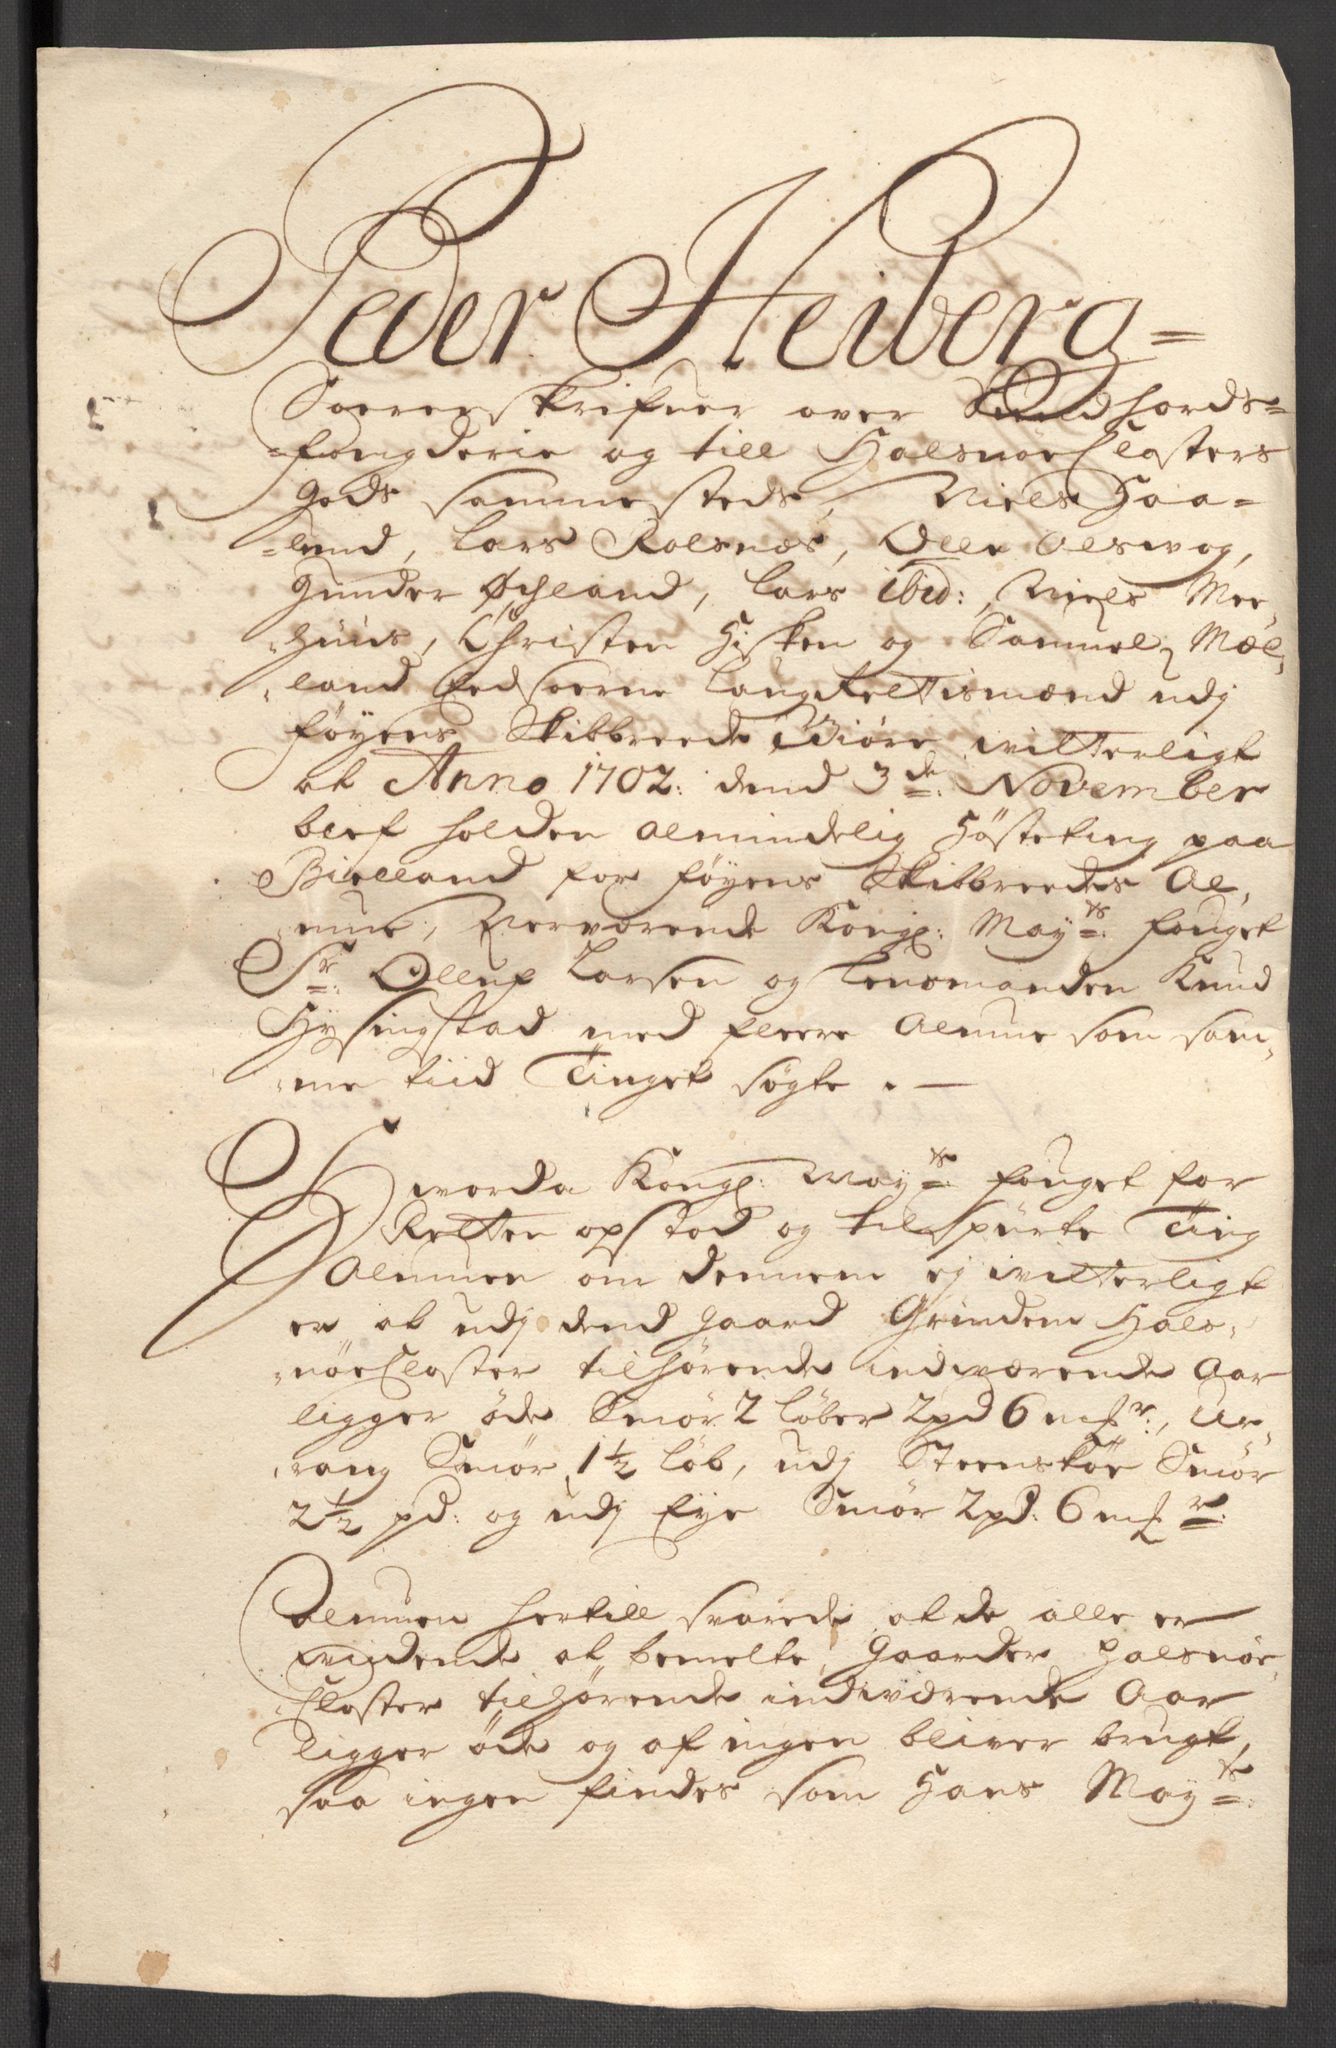 Peder Heiberg=
Sorenskrifuer over Sundhords=
=fougderie og till Halsnöe Closters
Gods sammesteds, Niels Haa=
=lund, Lars Rolsnæs, Olle Alsvog,
Gunder Øchland, Lars ibid: Niels Mee,
,huus, Christen Hisken og Samuel Mæl,
,land Eedsoerne Laugrettismænd udj
Føyens Skibbrede Giöre witterligt
at Anno 1702: dend 3de: November
blef holden almindelig Hösteting paa
Bielland for Føyens Skibbreedes Al,
,mue, Nerværende Kongl: Mayts: fouget
Sr: Olluf Larsen og Lensmanden Knud
Hysingstad med fleere Almue som sam,
,me tiid Tinget søgte. —
Hvorda Kongl: Mayts: fouget for
Retten opstod og tilspurte Ting
Almuen om dennem ej witterligt
er at udj dend gaard Grindem Hals,
,nöe Closter tilhörende indværende Aar
ligger öde Smör 2 Löber 2pd 6 mkr:, Ur,
,rang Smör 1½ Löb, udj Steensköe Smör
2½ pd: og udj Eye Smör 2pd: 6 mkr:
Almuen hertill svarede at de alle er
vidende at bemelte Gaarder Halsnöe,
,Closter tilhörende indværende Aar
ligger öde og af ingen bliver brugt,
saa ingen findes som Hans Mayts: